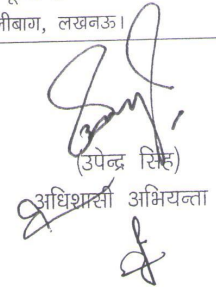 लीबाग, लखनऊ।
(उपेन्द्र सिंह)
अधिशासी अभियन्ता